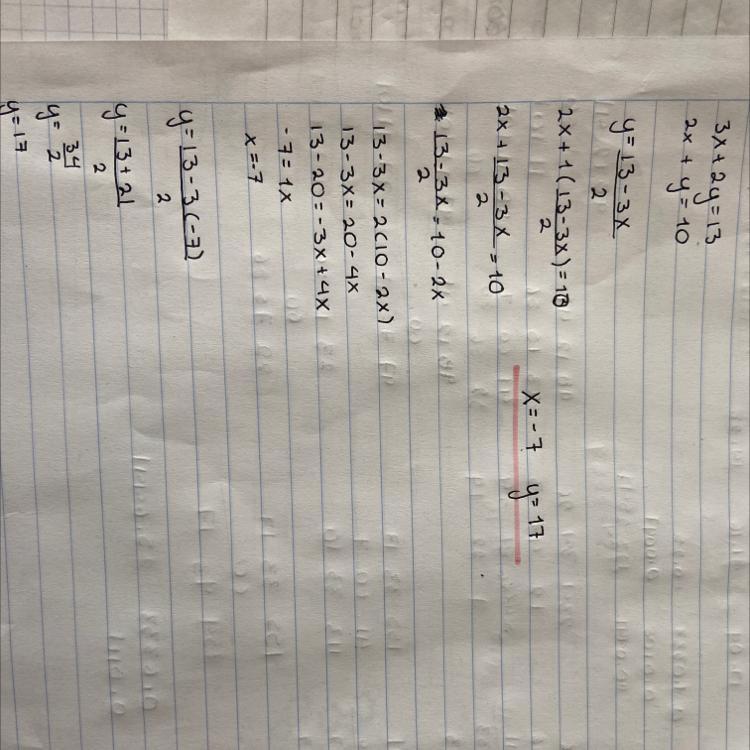 3x + 2y = 13
2x + y = 10
y = 13 - 3x / 2
2x + 1 ( 13 - 3x / 2 ) = 10
2x + 13 - 3x / 2 = 10
13 - 3x / 2 = 10 - 2x
13 - 3x = 2(10 - 2x)
13 - 3x = 20 - 4x
13 - 20 = -3x + 4x
-7 = 1x
x = -7
y = 13 - 3(-7) / 2
y = 13 + 21 / 2
y = 34 / 2
y = 17
x = -7 y = 17